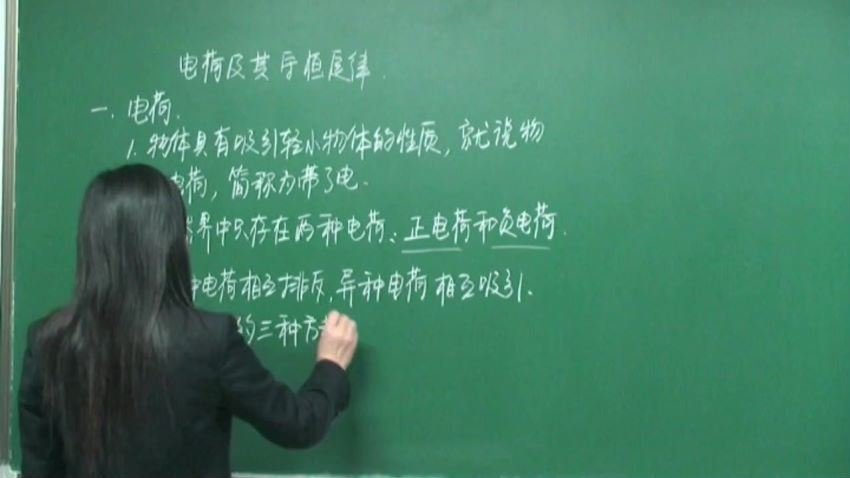 电荷及其守恒定律.
一.电荷.
1.物体具有吸引轻小物体的性质,就说物
电荷,简称为带了电.
界中只存在两种电荷:正电荷和负电荷.
种电荷相互排斥,异种电荷相互吸引.
的三种方